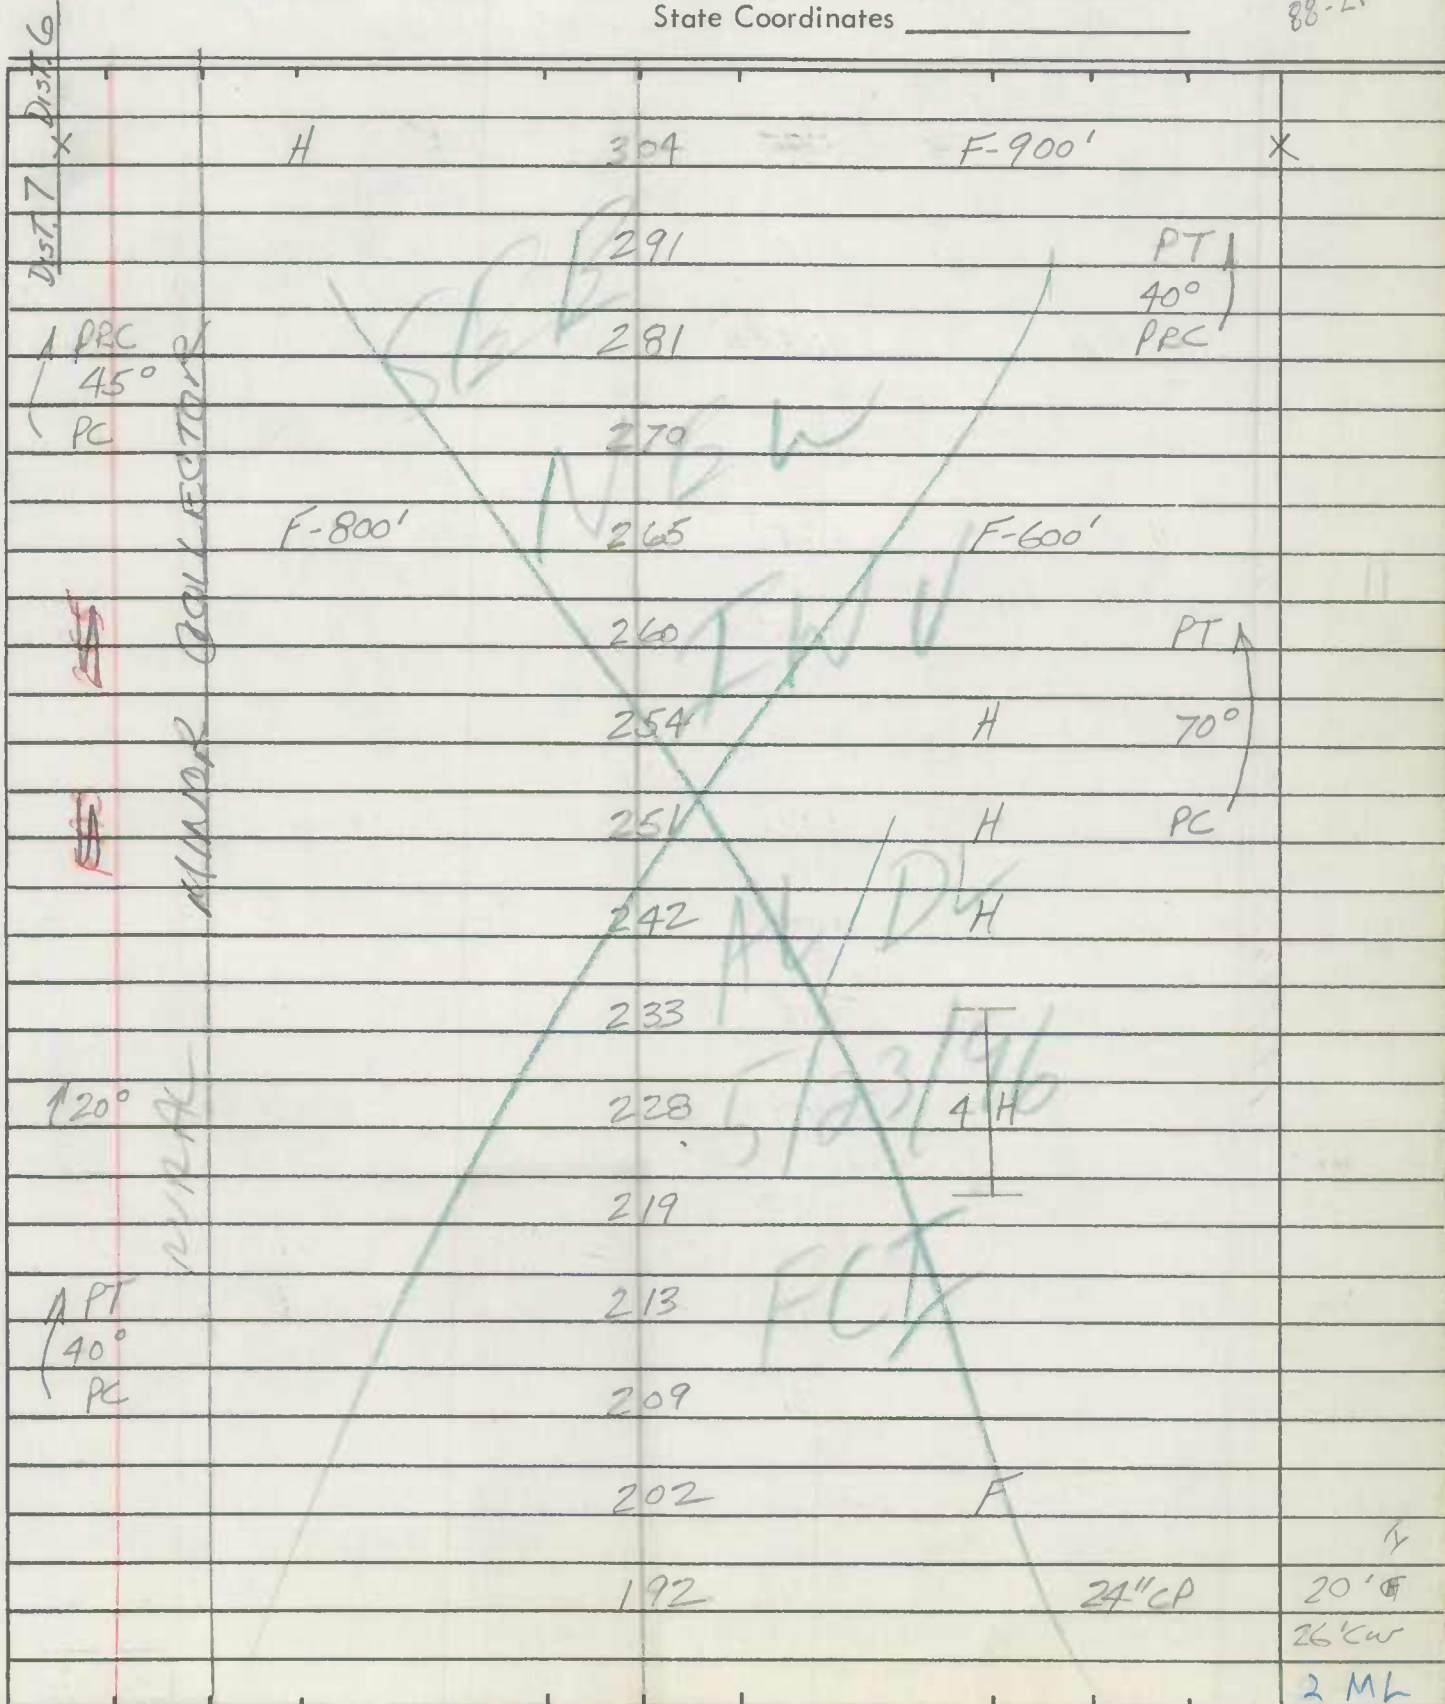 State Coordinates
Dist. 7 X Dist. 6
H 304 F-900' X
291 PT
40°
PRC 281 PRC
45°
PC 270
F-800' 265 F-600'
260 PT
254 H 70°
251 H PC
242 H
233
20° 228 4 H
219
PT 213
40°
PC 209
202 F
192 24"CP 20'
26'CW
2 ML
MINOR COLLECTOR
RURAL
SEE
NEW
INV
AL DL
5/23/96